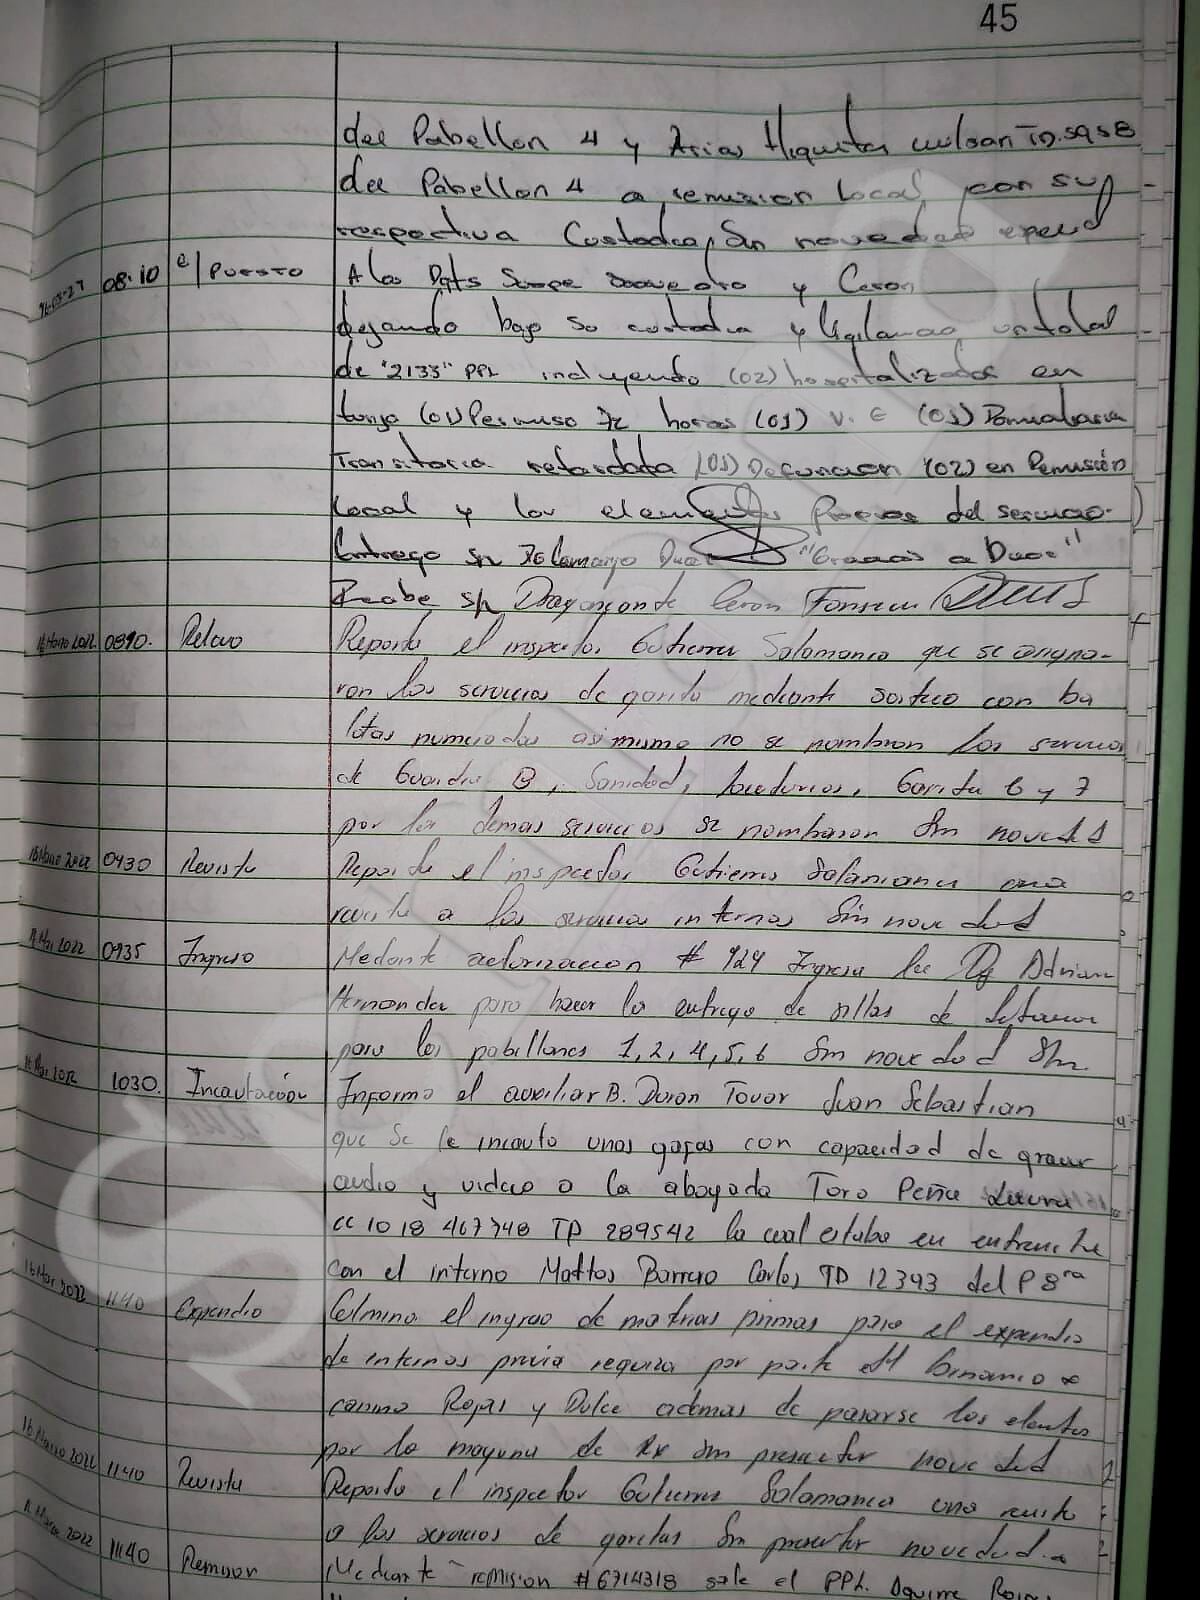 45
del Pabellon 4 y Arias Higuita TD.5958
del Pabellon 4 a remision local, con su
respectiva Custodia, Sin novedad
08:10 e/ PUESTO A los Dgts y Ceron
dejando bajo su custodia y Vigilancia un total
de "2133" PPL incluyendo (02) hospitalizados en
(01) Permiso 72 horas (01) V. E (01) Domiciliaria
Transitoria retardada (01) Defuncion (02) en Remisión
local y los elementos del servicio.
Entrego Sp Camargo "Gracias a Dios"
Recibe Sp Dragoneante Ceron Fonseca
16 Marzo 2022 0810. Relevo Reporta el inspector Gutierrez Salamanca que se
ron los servicios de garita mediante sorteo con ba
lotas numeradas asi mismo no se nombran los servicios
de Guardia B, Sanidad, Garita 6 y 7
por lo demas servicios se nombraron Sin novedad
16 Marzo 2022 0930 Revista Reporta el inspector Gutierrez Salamanca una
revista a los servicios internos Sin novedad
16 Mar 2022 0935 Ingreso Mediante autorizacion # 924 Ingresa Dg Adrian
Hernandez para hacer la entrega de sillas de
para los pabellones 1,2,4,5,6 Sin novedad
16 Mar 2022 1030. Incautación Informa el auxiliar B. Duran Tovar Juan Sebastian
que Se le incauto unas gafas con capacidad de gravar
audio y video a la abogada Toro Peña Laura
CC 1018 467748 TP 289542 la cual estaba en entrevista
con el interno Mattos Barrero Carlos TD 12393 del P 8ra
16 Mar 2022 1140 Expendio Culmina el ingreso de materias primas para el expendio
de internos previa requisa por parte del binomio
canino Rojas y Dulce ademas de pasarse los
por la maquina de Rx sin presentar novedad
16 Marzo 2022 1140 Revista Reporta el inspector Gutierrez Salamanca una revista
a los servicios de garitas Sin presentar novedad.
16 Marzo 2022 1140 Remision Mediante remision #6714318 sale el PPL. Aguirre Rojas